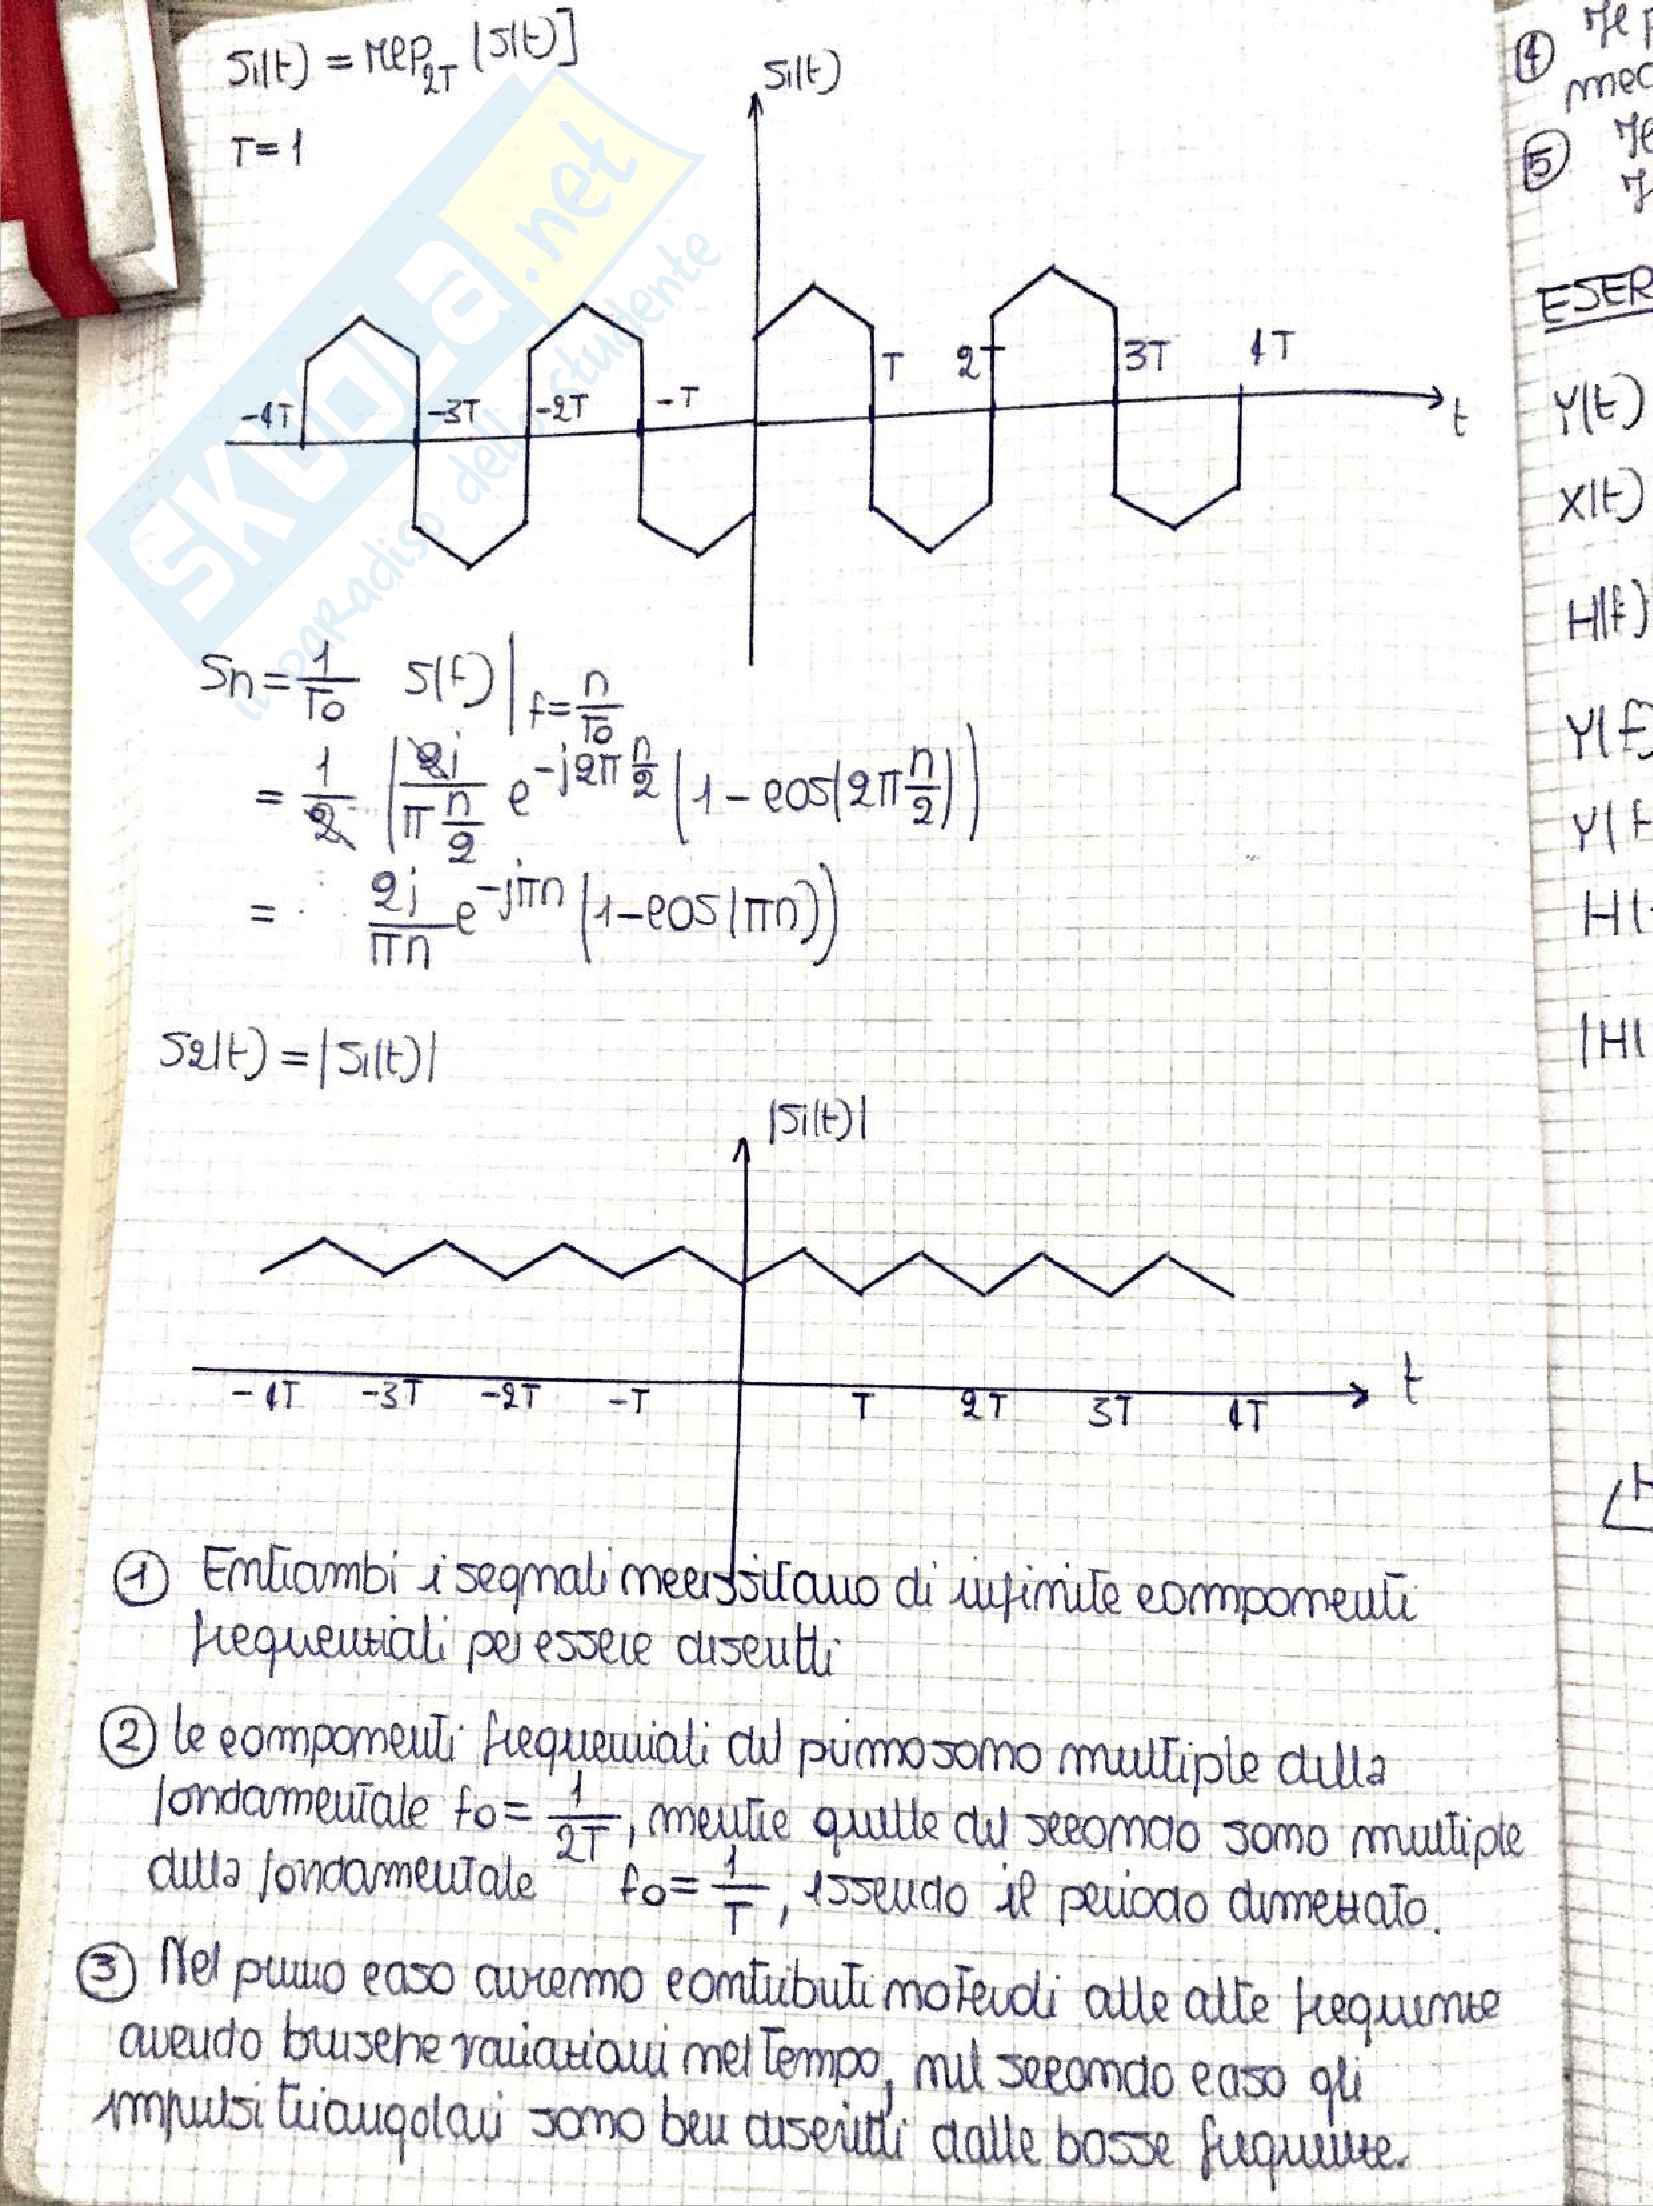 S₁(t) = rep_2T [S(t)]
T=1
S₁(t)
-4T -3T -2T -T T 2T 3T 4T
t
Sn = 1/T0 S(f)|f=n/T0
= 1/2 (2j/(π n/2) e^(-j2π n/2) (1-cos(2π n/2)))
= 2j/(πn) e^(-jπn) (1-cos(πn))
S2(t) = |S₁(t)|
|S₁(t)|
-4T -3T -2T -T T 2T 3T 4T
t
① Entrambi i segnali necessitano di infinite componenti
frequenziali per essere discritti
② le componenti frequenziali del primo sono multiple della
fondamentale f0 = 1/2T, mentre quelle del secondo sono multiple
della fondamentale f0 = 1/T, essendo il periodo dimezzato.
③ Nel primo caso avremo contributi notevoli alle alte frequenze
avendo brusche variazioni nel tempo, nel secondo caso gli
impulsi triangolari sono ben discritti dalle basse frequenze.
SKUOLA.net
il paradiso dello studente
④
⑤
ESER
Y(t)
X(t)
H(f)
Y(f)
Y(f
H(
|H(